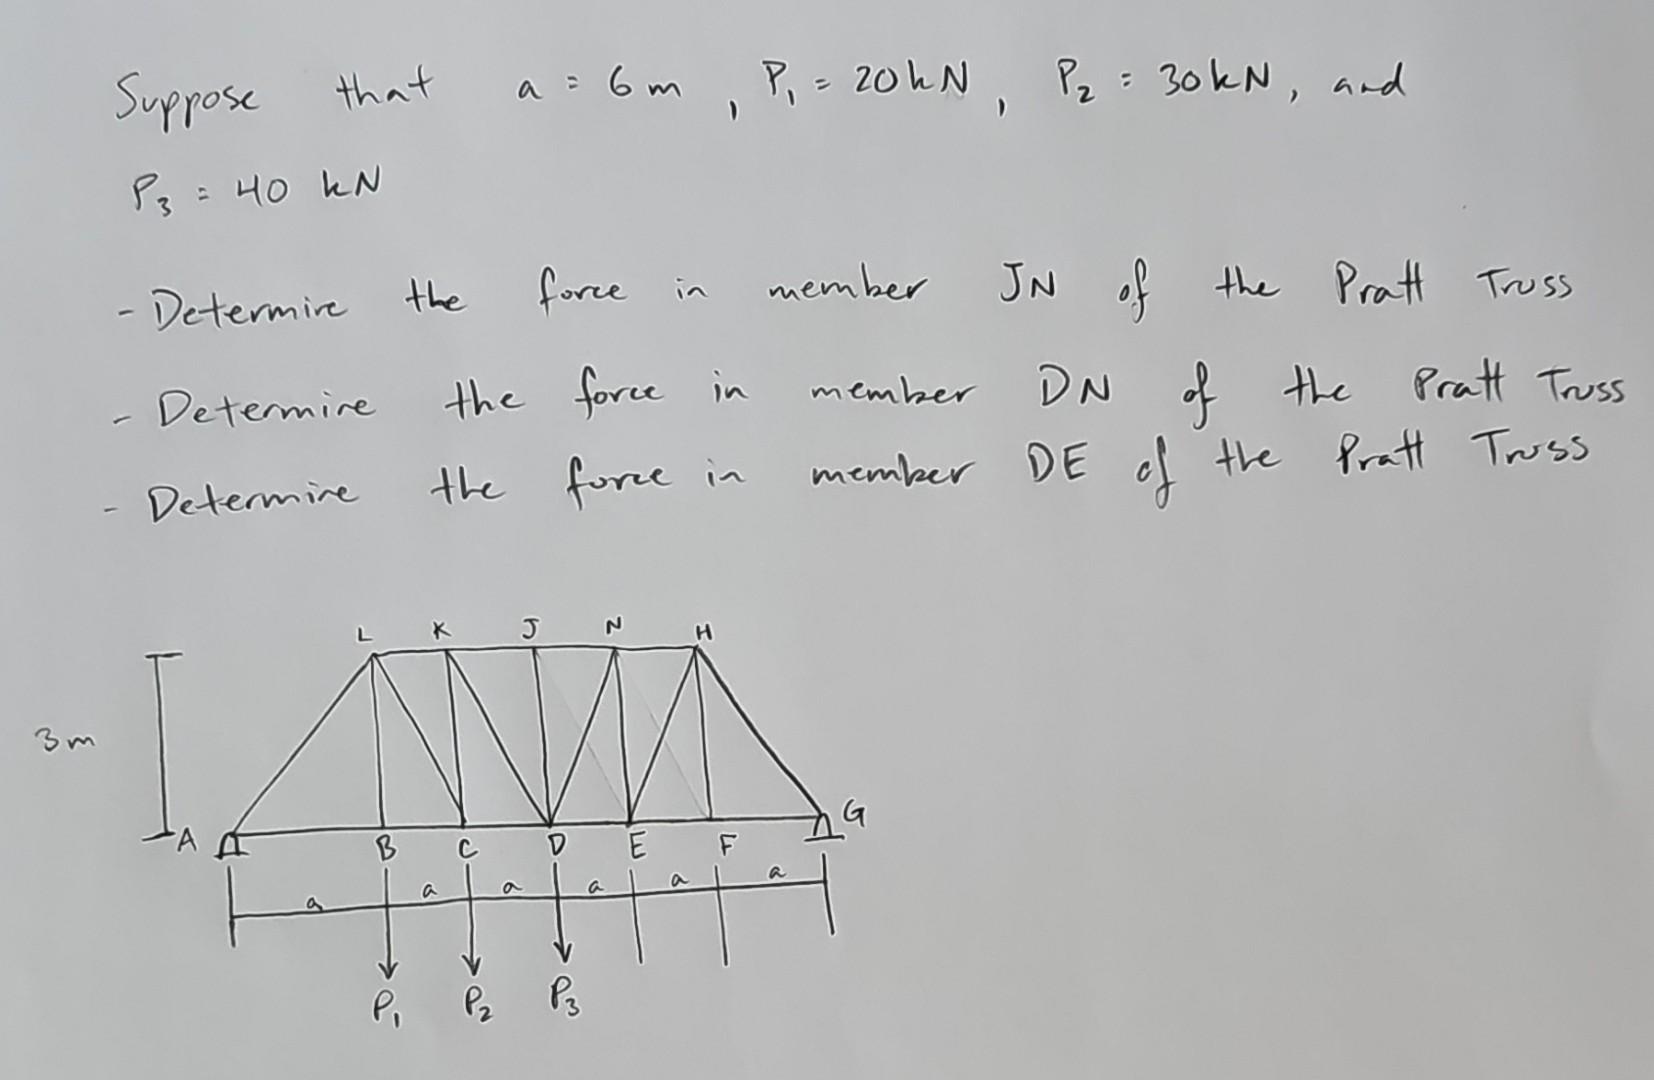 Suppose that a = 6 m, P₁ = 20 kN, P₂ = 30 kN, and
P₃ = 40 kN
- Determine the force in member JN of the Pratt Truss
- Determine the force in member DN of the Pratt Truss
- Determine the force in member DE of the Pratt Truss
L K J N H
3 m
A B C D E F G
a a a a a a
P₁ P₂ P₃